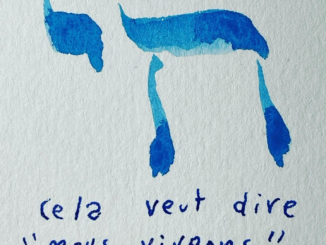 חי
cela veut dire
"nous vivrons"